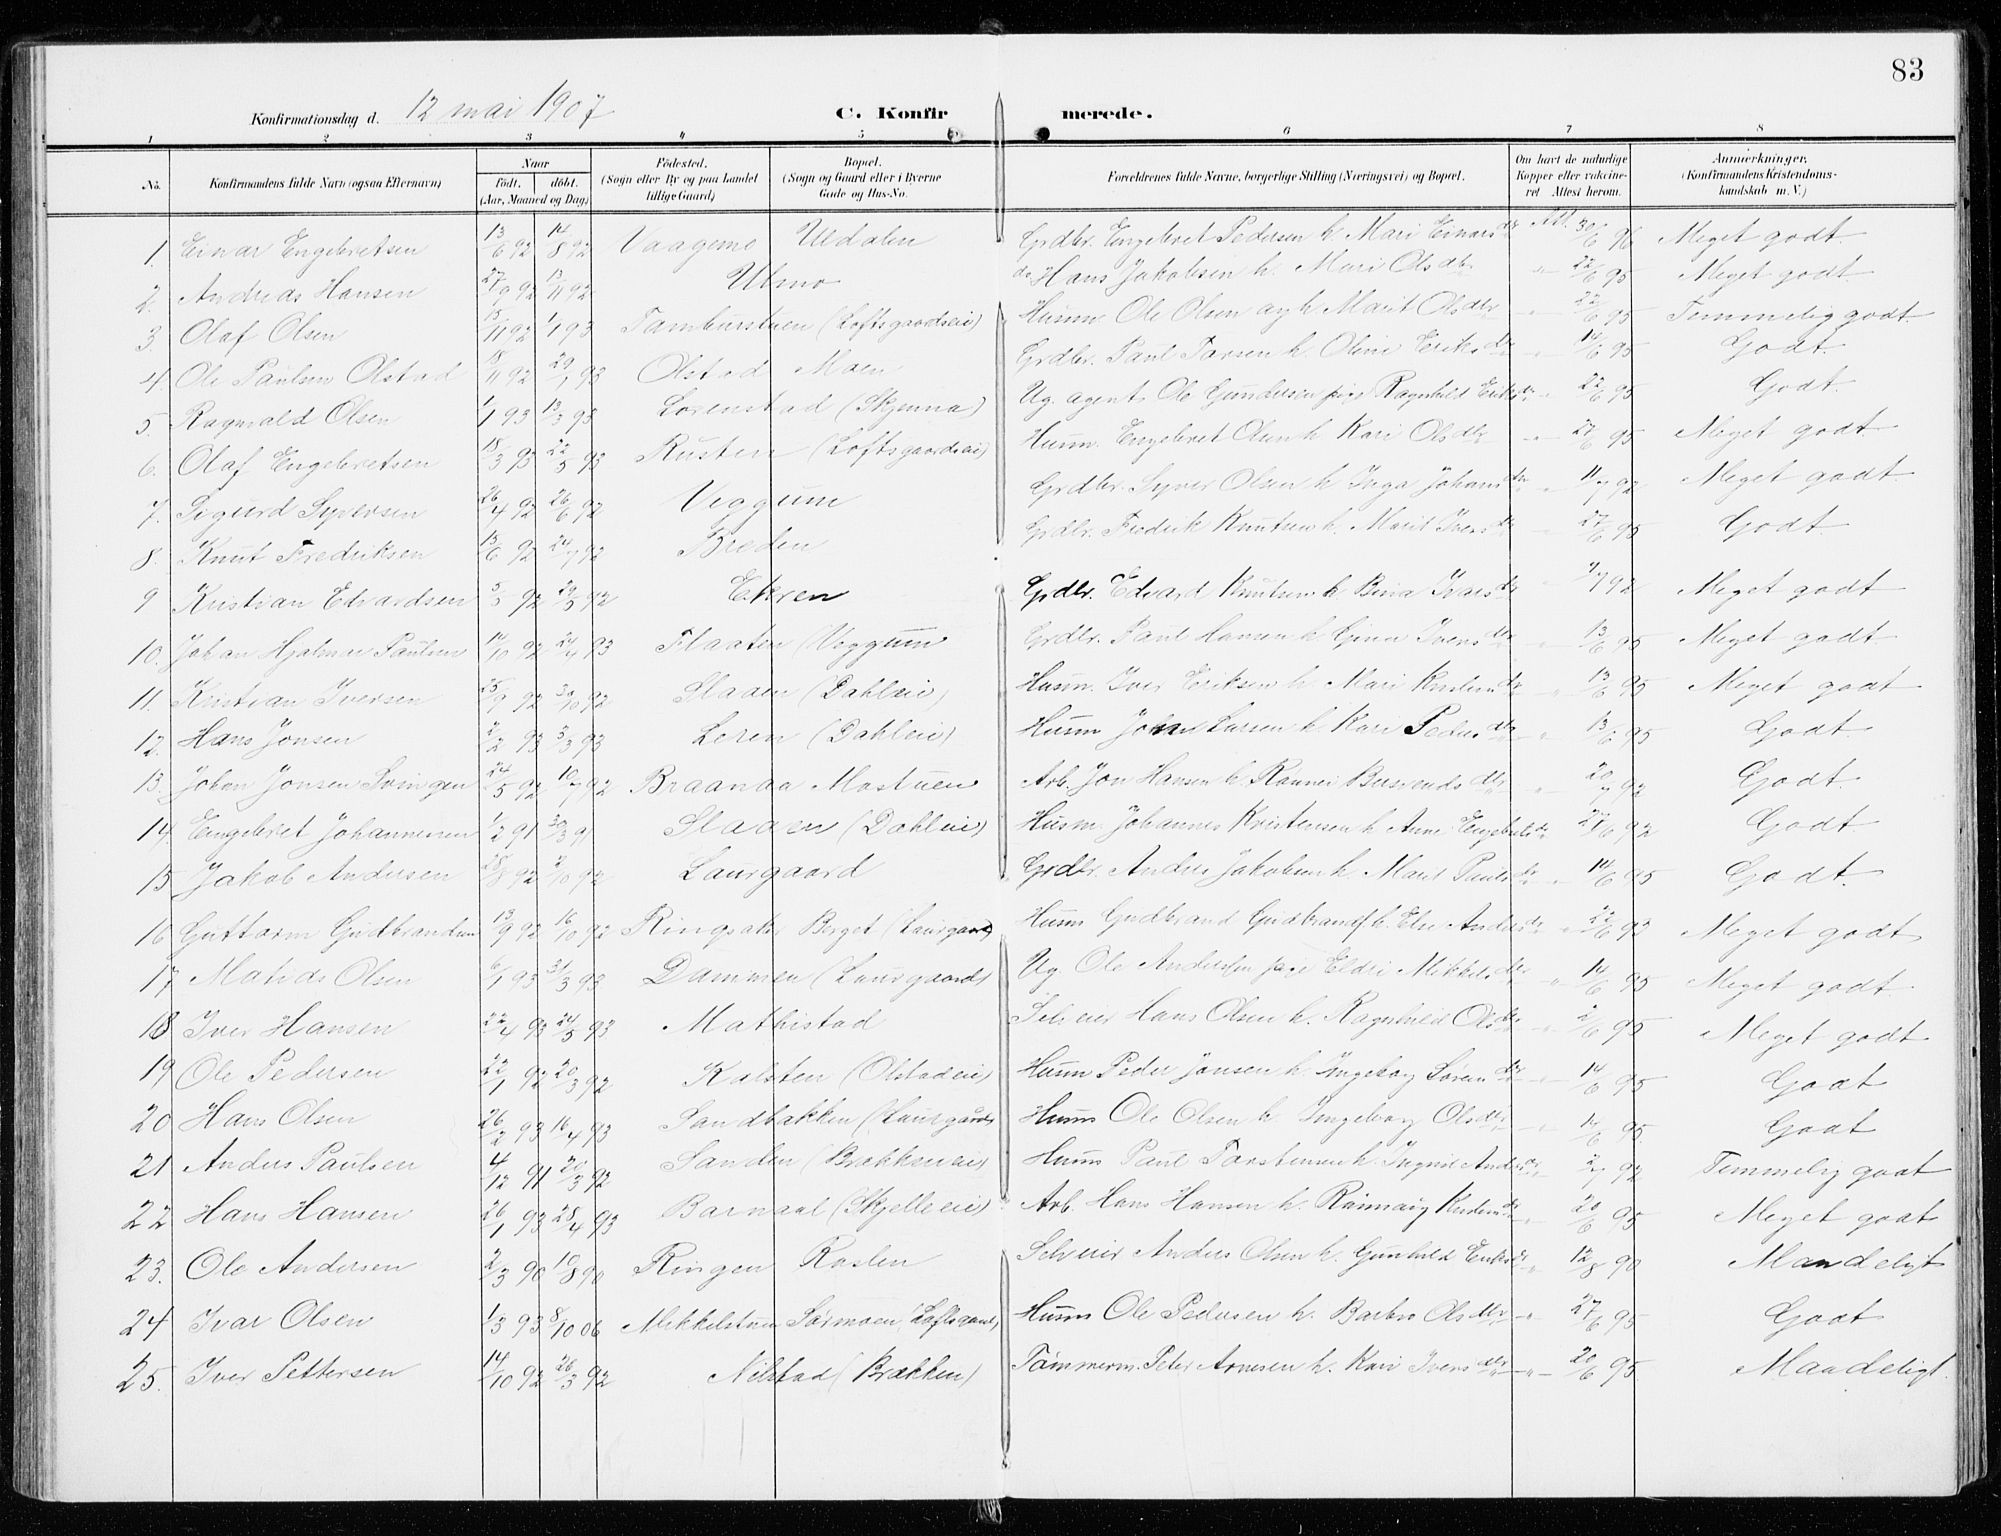 83
Konfirmationsdag d. 12 mai 1907 C. Konfirmerede.
1 2 3 4 5 6 7 8
No. Konfirmandens fulde Navn (ogsaa Efternavn) Naar født. døbt. (Aar, Maaned og Dag) Fødested. (Sogn eller By og paa Landet tillige Gaard) Bopæl. (Sogn og Gaard eller i Byerne Gade og Hus-No. Forældrenes fulde Navne, borgerlige Stilling (Næringsvei) og Bopæl. Om havt de naturlige Kopper eller vakcineret. Attest herom. Anmærkninger. (Konfirmandens Kristendomskundskab m. V.)
1. Einar Engebretsen 13/6 92 14/8 92 Vaagemo Uldalen Grdbr. Engebret Pedersen h. Mari Einarsdr Att. 30/6 96 Meget godt
2. Andreas Hansen 27/9 92 13/11 92 Ulmo do Hans Jakobsen h. Mari Olsdtr " 22/6 95 Meget godt
3. Olaf Olsen 15/11 92 1/1 93 Tamburstuen (Loftsgaardseie) Husm. Ole Olsen og h. Marit Olsdtr " 22/6 95 Temmelig godt.
4. Ole Paulsen Olstad 18/11 92 29/1 93 Olstad Moen Grdbr. Paul Hansen h. Oline Eriksdr " 14/6 95 Godt.
5. Ragnvald Olsen 1/1 93 13/3 93 Lorenstad (Skjenna) Ug. agent Ole Gundersen pige Ragnhild Eriksdr " 22/6 95 Godt
6. Olaf Engebretsen 18/3 93 22/5 93 Rusten (Loftsgaardseie) Husm. Engebret Olsen h. Kari Olsdtr " 27/6 95 Meget godt.
7. Sigurd Syversen 26/4 92 26/6 92 Veggum Grdbr. Syver Olsen h. Inga Johansdr " 11/7 92 Meget godt
8. Knut Fredriksen 15/6 92 24/7 92 Breden Grdbr. Fredrik Knutsen h. Marit Iversdr " 27/6 95 Godt
9 Kristian Edvardsen 5/5 92 29/5 92 Ekren Grdbr. Edvard Knutsen h. Bina Ivarsdr " 92 Meget godt
10. Johan Hjalmar Paulsen 14/10 92 24/4 93 Flaaten (Veggum Grdbr. Paul Hansen h. Gina Iversdr " 13/6 95 Meget godt
11. Kristian Iversen 25/9 92 30/10 92 Slaaen (Dahleie) Husm. Iver Eriksen h. Mari Knudsdr " 13/6 95 Meget godt
12. Hans Jonsen 2/2 93 3/3 93 Leren (Dahleie) Husm Johan Larsen h. Kari Pedersdtr " 13/6 95 Godt
13. Johan Jonsen Svingen 24/5 92 10/7 92 Braanaa Mostuen Arb. Jon Hansen h. Rannei dtr " 20/7 92 Godt.
14. Engebret Johannesen 1/2 91 30/3 91 Slaaen (Dahleie) Husm. Johannes Kristensen h. Anne Engebretsdr 27/6 92 Godt
15 Jakob Andersen 28/8 92 2/10 92 Laurgaard Grdbr. Anders Jakobsen h. Marit Paulsdr " 14/6 95 Godt.
16 Guttorm Gudbrandsen 13/9 92 16/10 92 Ringsaker Berget (Laurgaard) Husm Gudbrand Gudbrands. h. Else Andersdr " 22/6 93 Meget godt
17 Olsen 6/1 93 31/3 93 Dammen (Laurgaards) Ug. Ole Anderssen pige Eldri Mikkelsdtr " 14/6 95 Meget godt.
18 Iver Hansen 22/4 93 24/5 93 Mathistad Selveier Hans Olsen h. Ragnhild Olsdtr " 2/6 95 Meget godt
19 Ole Pedersen 22/1 92 20/3 92 Kalsten (Olstadeie) Husm Peder Jonsen h. Ingeborg Sørensdtr " 14/6 95 Godt
20 Hans Olsen 26/2 93 16/4 93 Sandbakken (Laurgaards Husm Ole Olsen h. Ingeborg Olsdtr " 14/6 95. Godt
21 Anders Paulsen 4/12 91 20/3 92 Sanden (Brækkeneie) Husm Paul Torstensen h. Ingrid Andersdr " 2/7 92 Temmelig godt
22 Hans Hansen 26/1 93 28/4 93 Barnaal (Skjelleeie) Arb. Hans Hansen h. Rønnaug Knudsdr " 20/6 95 Meget godt
23. Ole Andersen 2/3 90 10/8 90 Ringen Roslen Selveier Anders Olsen h. Gunhild Eriksdr " 12/8 90 Maadeligt
24 Ivar Olsen 1/3 93 8/10 06 Mikkelstuen Sørmoen (Loftsgaard) Husm Ole Pedersen h. Barbro Olsdtr " 27/6 95 Godt
25. Iver Pettersen 14/10 92 26/3 92 Nilstad (Brækken) Tømmerm. Peter Arnesen h. Kari Iversdtr " 20/6 95 Maadeligt